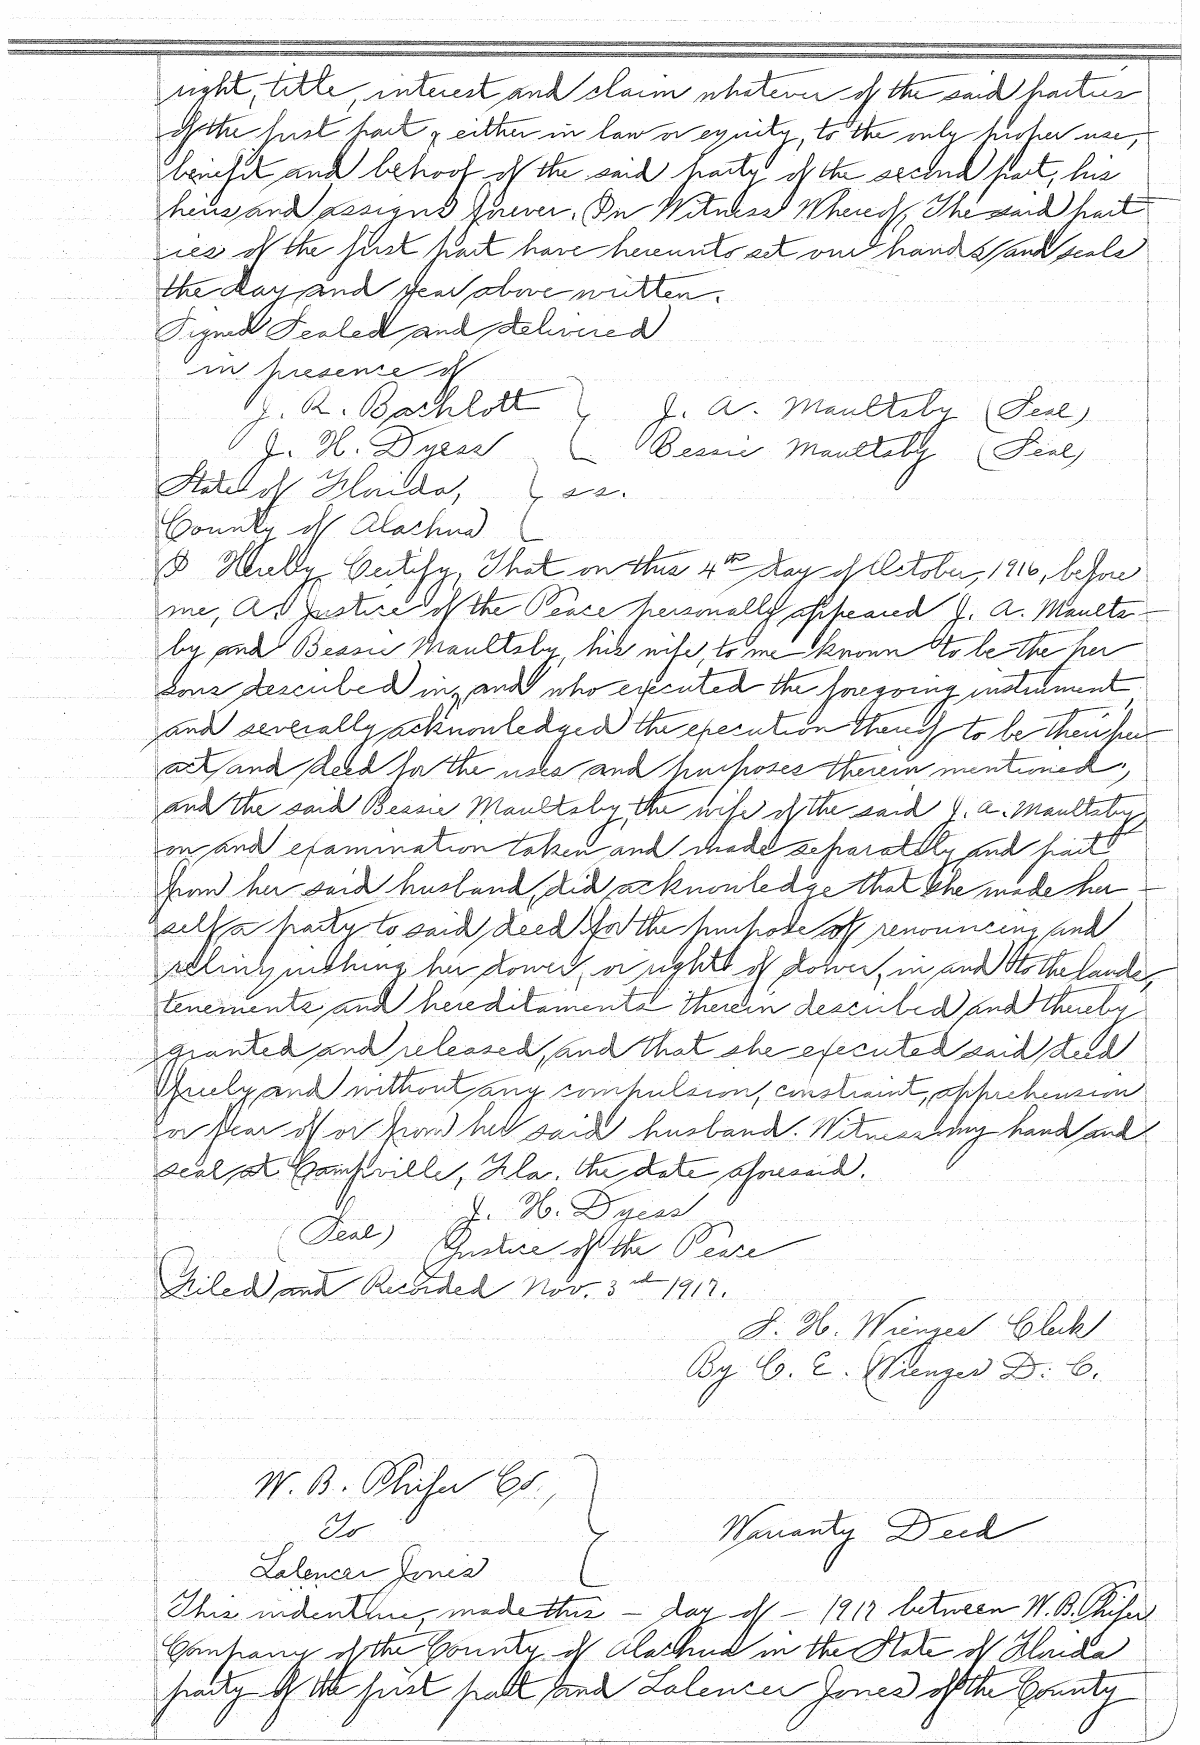 right, title, interest and claim whatever of the said parties
of the first part, either in law or equity, to the only proper use,
benefit and behoof of the said party of the second part, his
heirs and assigns forever. In Witness Whereof, The said part
ies of the first part have hereunto set our hands and seals
the day and year above written.
Signed Sealed and delivered
in presence of
J. R. Bachlott } J. A. Maultsby (Seal)
J. H. Dyess Bessie Maultsby (Seal)
State of Florida, } ss.
County of Alachua
I Hereby Certify, That on this 4th day of October, 1916, before
me, A. Justice of the Peace personally appeared J. A. Maults-
by and Bessie Maultsby, his wife, to me known to be the per
sons described in, and who executed the foregoing instrument
and severally acknowledged the execution thereof to be their free
act and deed for the uses and purposes therein mentioned;
and the said Bessie Maultsby, the wife of the said J. A. Maultsby
on and examination taken and made separately and part
from her said husband, did acknowledge that she made her
self a party to said deed for the purpose of renouncing and
relinquishing her dower, or right of dower, in and to the lands,
tenements and hereditaments therein described and thereby
granted and released, and that she executed said deed
freely and without any compulsion, constraint, apprehension
or fear of or from her said husband. Witness my hand and
seal at Campville, Fla. the date aforesaid.
J. H. Dyess
(Seal) Justice of the Peace
Filed and Recorded Nov. 3rd 1917.
S. H. Wienges Clerk
By C. E. Wienges D. C.
W. B. Phifer Co.,
To } Warranty Deed
Lalencer Jones
This indenture, made this – day of – 1917 between W. B. Phifer
Company of the County of Alachua in the State of Florida
party of the first part and Lalencer Jones of the County